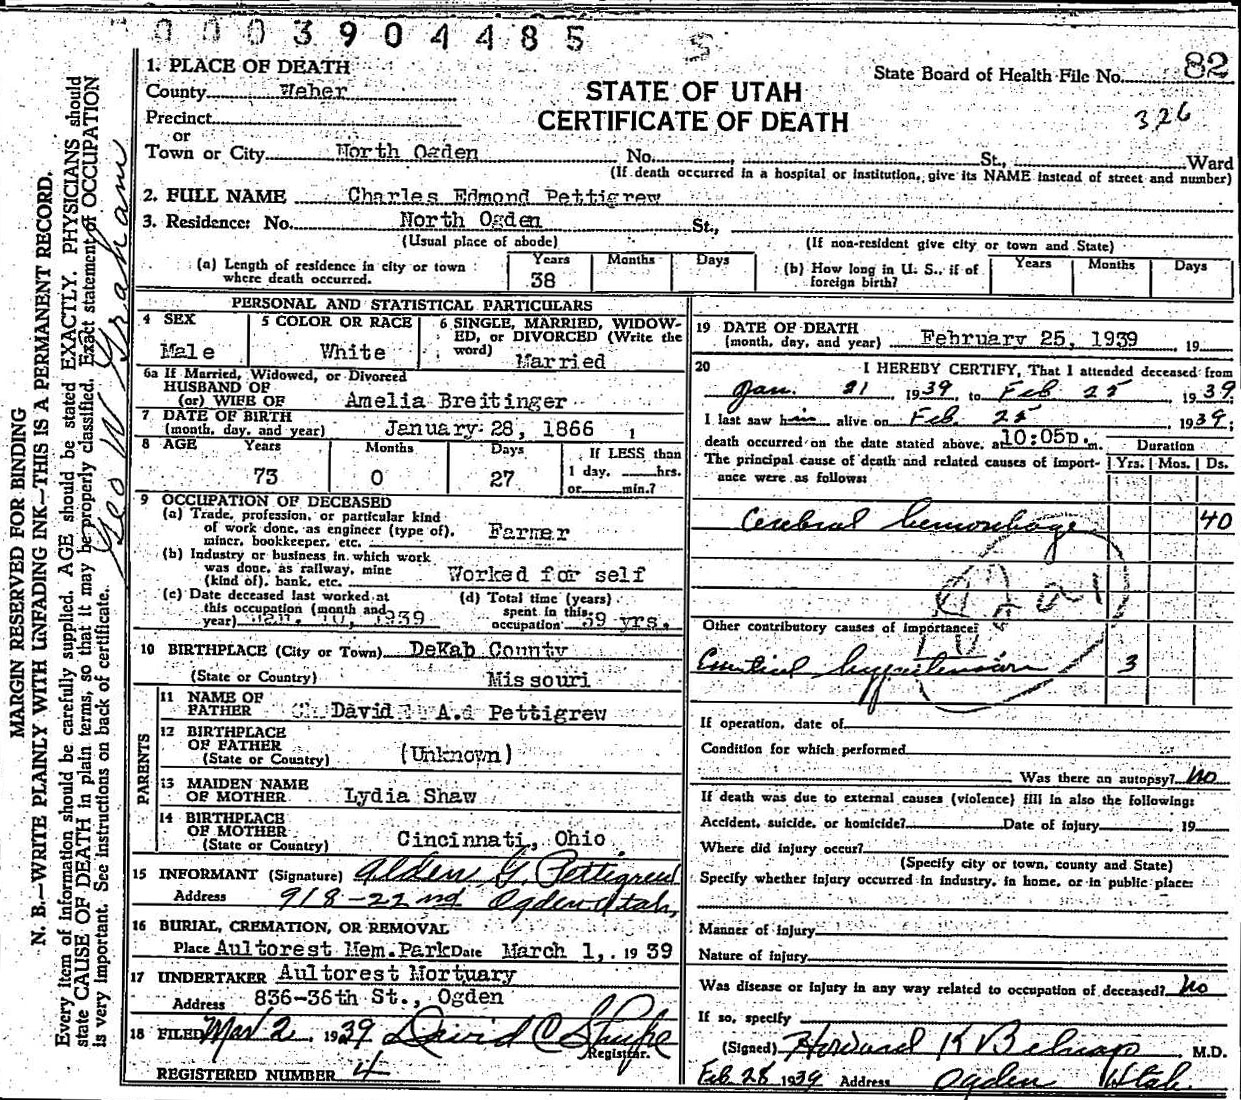 0003904485 S
1. PLACE OF DEATH
County Weber
Precinct
or
Town or City North Ogden
State Board of Health File No. 82
326
STATE OF UTAH
CERTIFICATE OF DEATH
No. , St., Ward
(If death occurred in a hospital or institution, give its NAME instead of street and number)
2. FULL NAME Charles Edmond Pettigrew
3. Residence: No. North Ogden St.,
(Usual place of abode) (If non-resident give city or town and State)
(a) Length of residence in city or town where death occurred. Years 38 Months Days
(b) How long in U. S., if of foreign birth? Years Months Days
PERSONAL AND STATISTICAL PARTICULARS
4 SEX Male
5 COLOR OR RACE White
6 SINGLE, MARRIED, WIDOWED, or DIVORCED (Write the word) Married
6a If Married, Widowed, or Divorced
HUSBAND OF
(or) WIFE OF Amelia Breitinger
7 DATE OF BIRTH
(month, day, and year) January 28, 1866
8 AGE Years 73 Months 0 Days 27 If LESS than 1 day, hrs. or min.?
9 OCCUPATION OF DECEASED
(a) Trade, profession, or particular kind
of work done, as engineer (type of),
miner, bookkeeper, etc. Farmer
(b) Industry or business in which work
was done, as railway, mine
(kind of), bank, etc. Worked for self
(c) Date deceased last worked at
this occupation (month and
year) Jan. 10, 1939
(d) Total time (years)
spent in this
occupation 59 yrs.
10 BIRTHPLACE (City or Town) DeKab County
(State or Country) Missouri
PARENTS
11 NAME OF
FATHER David A. Pettigrew
12 BIRTHPLACE
OF FATHER
(State or Country) (Unknown)
13 MAIDEN NAME
OF MOTHER Lydia Shaw
14 BIRTHPLACE
OF MOTHER
(State or Country) Cincinnati, Ohio
15 INFORMANT (Signature) Alden G. Pettigrew
Address 918-22nd Ogden Utah,
16 BURIAL, CREMATION, OR REMOVAL
Place Aultorest Mem. Park Date March 1, 1939
17 UNDERTAKER Aultorest Mortuary
Address 836-36th St., Ogden
18 FILED Mar 2, 1939 David C
Registrar.
REGISTERED NUMBER 4
19 DATE OF DEATH
(month, day, and year) February 25, 1939 , 19
20 I HEREBY CERTIFY, That I attended deceased from
Jan. 21 1939, to Feb 25 1939.
I last saw him alive on Feb. 25 1939;
death occurred on the date stated above, at 10:05p.m. Duration
The principal cause of death and related causes of importance were as follows: Yrs. Mos. Ds.
Cerebral hemorrhage 40
Other contributory causes of importance:
Essential hypertension 3
If operation, date of
Condition for which performed
Was there an autopsy? No
If death was due to external causes (violence) fill in also the following:
Accident, suicide, or homicide? Date of injury , 19
Where did injury occur?
(Specify city or town, county and State)
Specify whether injury occurred in industry, in home, or in public place:
Manner of injury
Nature of injury
Was disease or injury in any way related to occupation of deceased? No
If so, specify
(Signed) Howard K Belnap M.D.
Feb. 28 1939 Address Ogden Utah.
MARGIN RESERVED FOR BINDING
N. B.—WRITE PLAINLY WITH UNFADING INK—THIS IS A PERMANENT RECORD.
Every item of information should be carefully supplied. AGE should be stated EXACTLY. PHYSICIANS should
state CAUSE OF DEATH in plain terms, so that it may be properly classified. Exact statement of OCCUPATION
is very important. See instructions on back of certificate.
Geo W Graham